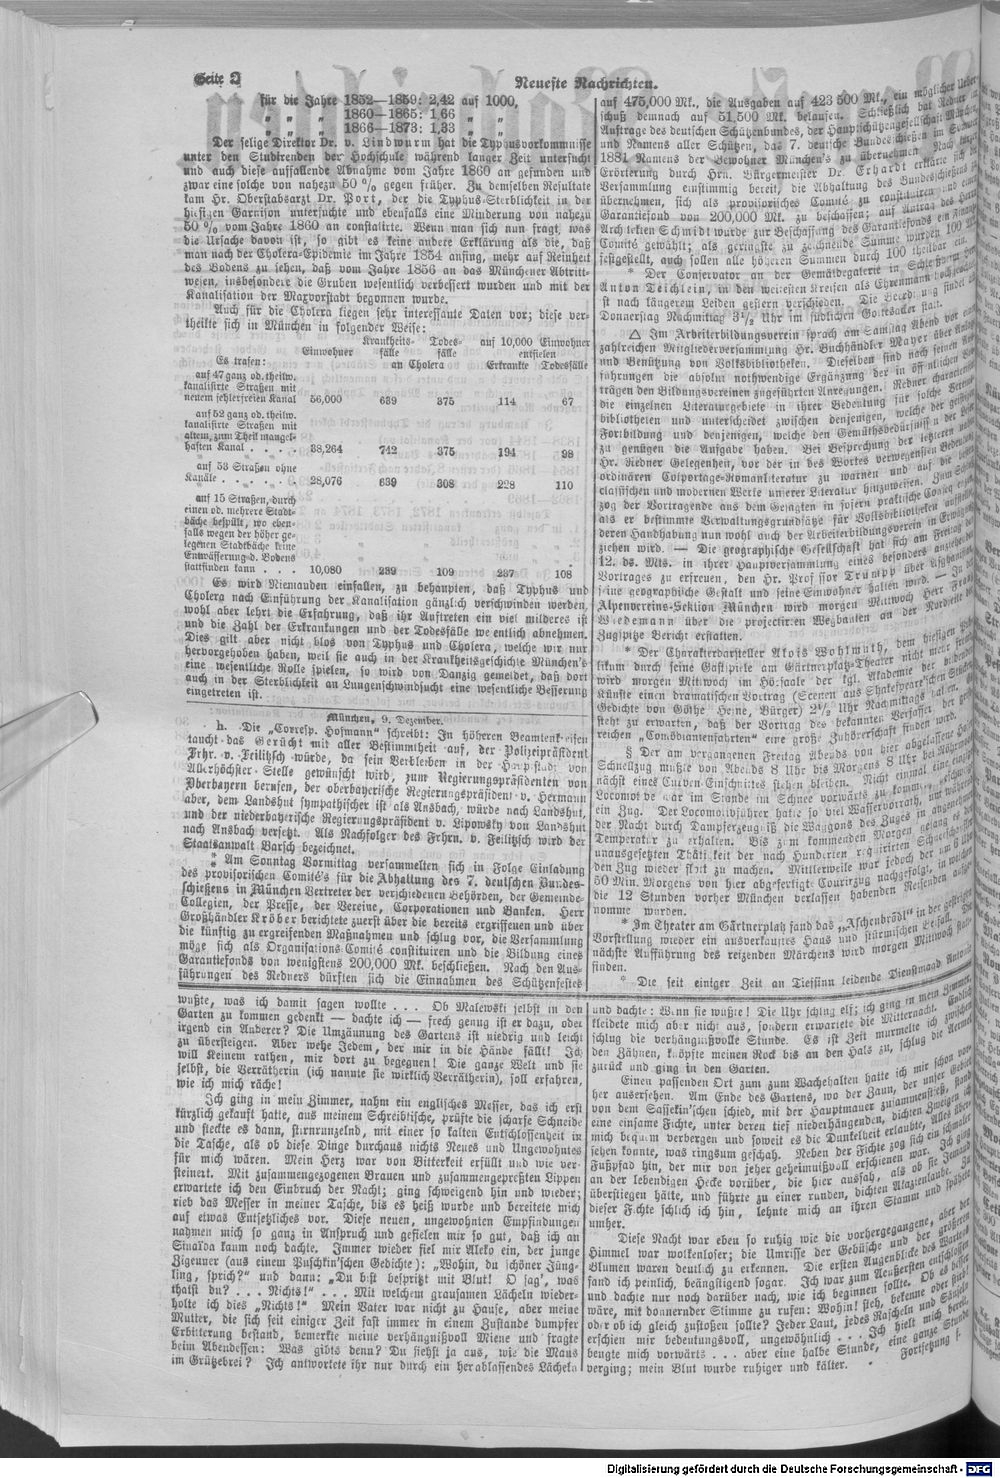 Seite 2
Neueste Nachrichten.
für die Jahre 1852—1859: 2,42 auf 1000,
„ „ „ 1860—1865: 1,66 „ „
„ „ „ 1866—1873: 1,33 „ „
Der selige Direktor Dr. v. Lindwurm hat die Typhusvorkommnisse
unter den Studirenden der Hochschule während langer Zeit untersucht
und auch diese auffallende Abnahme vom Jahre 1860 an gefunden und
zwar eine solche von nahezu 50 % gegen früher. Zu demselben Resultate
kam Hr. Oberstabsarzt Dr. Port, der die Typhus-Sterblichkeit in der
hiesigen Garnison untersuchte und ebenfalls eine Minderung von nahezu
50 % vom Jahre 1860 an constatirte. Wenn man sich nun fragt, was
die Ursache davon ist, so gibt es keine andere Erklärung als die, daß
man nach der Cholera-Epidemie im Jahre 1854 anfing, mehr auf Reinheit
des Bodens zu sehen, daß vom Jahre 1856 an das Münchener Abtritt-
wesen, insbesondere die Gruben wesentlich verbessert wurden und mit der
Kanalisation der Maxvorstadt begonnen wurde.
Auch für die Cholera liegen sehr interessante Daten vor; diese ver-
theilte sich in München in folgender Weise:
Krankheits- Todes- auf 10,000 Einwohner
Einwohner fälle fälle entfielen
Es trafen: an Cholera Erkrankte Todesfälle
auf 47 ganz od. theilw.
kanalisirte Straßen mit
neuem fehlerfreien Kanal 56,000 639 375 114 67
auf 52 ganz od. theilw.
kanalisirte Straßen mit
altem, zum Theil mangel-
haften Kanal . . . . 38,264 742 375 194 98
auf 53 Straßen ohne
Kanäle . . . . . . . 28,076 639 308 228 110
auf 15 Straßen, durch
einen od. mehrere Stadt-
bäche bespült, wo eben-
falls wegen der höher ge-
legenen Stadtbäche keine
Entwässerung d. Bodens
stattfinden kann . . . 10,080 239 109 237 108
Es wird Niemanden einfallen, zu behaupten, daß Typhus und
Cholera nach Einführung der Kanalisation gänzlich verschwinden werden,
wohl aber lehrt die Erfahrung, daß ihr Auftreten ein viel milderes ist
und die Zahl der Erkrankungen und der Todesfälle wesentlich abnehmen.
Dies gilt aber nicht blos von Typhus und Cholera, welche wir nur
hervorgehoben haben, weil sie auch in der Krankheitsgeschichte München's
eine wesentliche Rolle spielen, so wird von Danzig gemeldet, daß dort
auch in der Sterblichkeit an Lungenschwindsucht eine wesentliche Besserung
eingetreten ist.
München, 9. Dezember.
h. Die „Corresp. Hofmann" schreibt: In höheren Beamtenkreisen
taucht das Gerücht mit aller Bestimmtheit auf, der Polizeipräsident
Frhr. v. Feilitzsch würde, da sein Verbleiben in der Hauptstadt von
Allerhöchster Stelle gewünscht wird, zum Regierungspräsidenten von
Oberbayern berufen, der oberbayerische Regierungspräsident v. Hermann
aber, dem Landshut sympathischer ist als Ansbach, würde nach Landshut,
und der niederbayerische Regierungspräsident v. Lipowsky von Landshut
nach Ansbach versetzt. Als Nachfolger des Frhrn. v. Feilitzsch wird der
Staatsanwalt Barsch bezeichnet.
Am Sonntag Vormittag versammelten sich in Folge Einladung
des provisorischen Comité's für die Abhaltung des 7. deutschen Bundes-
schießens in München Vertreter der verschiedenen Behörden, der Gemeinde-
Collegien, der Presse, der Vereine, Corporationen und Banken. Herr
Großhändler Kröber berichtete zuerst über die bereits ergriffenen und über
die künftig zu ergreifenden Maßnahmen und schlug vor, die Versammlung
möge sich als Organisations-Comité constituiren und die Bildung eines
Garantiefonds von wenigstens 200,000 Mk. beschließen. Nach den Aus-
führungen des Redners dürften sich die Einnahmen des Schützenfestes
auf 475,000 Mk., die Ausgaben auf 423 500 Mk., ein möglicher Ueber-
schuß demnach auf 51,500 Mk. belaufen. Schließlich bat Redner im
Auftrage des deutschen Schützenbundes, der Hauptschützengesellschaft München,
und Namens aller Schützen, das 7. deutsche Bundesschießen im Sommer
1881 Namens der Bewohner München's zu übernehmen. Nach kurzer
Erörterung durch Hrn. Bürgermeister Dr. Erhardt erklärte sich die
Versammlung einstimmig bereit, die Abhaltung des Bundesschießens zu
übernehmen, sich als provisorisches Comité zu constituiren und einen
Garantiefond von 200,000 Mk. zu beschaffen; auf Antrag des Herrn
Architekten Schmidt wurde zur Beschaffung des Garantiefonds ein Finanz-
Comité gewählt; als geringste zu zeichnende Summe wurden 100 Mk.
festgestellt, auch sollen alle höheren Summen durch 100 theilbar sein.
* Der Conservator an der Gemäldegalerie in Schleißheim Herr
Anton Teichlein, in den weitesten Kreisen als Ehrenmann hochgeachtet,
ist nach längerem Leiden gestern verschieden. Die Beerdigung findet
Donnerstag Nachmittag 3½ Uhr im südlichen Gottesacker statt.
△ Im Arbeiterbildungsverein sprach am Samstag Abend vor einer
zahlreichen Mitgliederversammlung Hr. Buchhändler Mayer über Anlage
und Benützung von Volksbibliotheken. Dieselben sind nach seinen Aus-
führungen die absolut nothwendige Ergänzung der in öffentlichen Vor-
trägen den Bildungsvereinen zugeführten Anregungen. Redner charakterisirte
die einzelnen Literaturgebiete in ihrer Bedeutung für solche Vereins-
bibliotheken und unterscheidet zwischen denjenigen, welche der geistigen
Fortbildung und denjenigen, welche den Gemüthsbedürfnissen der Leser
zu genügen die Aufgabe haben. Bei Besprechung der letzteren nahm
Hr. Redner Gelegenheit, vor der in des Wortes verwegenster Bedeutung
ordinären Colportage-Romanliteratur zu warnen und auf die besten
classischen und modernen Werke unserer Literatur hinzuweisen. Zum Schluß
zog der Vortragende aus dem Gesagten in sofern praktische Consequenzen
als er bestimmte Verwaltungsgrundsätze für Volksbibliotheken aufstellte,
deren Handhabung nun wohl auch der Arbeiterbildungsverein in Erwägung
ziehen wird. — Die geographische Gesellschaft hat sich am Freitag den
12. ds. Mts. in ihrer Hauptversammlung eines besonders anziehenden
Vortrages zu erfreuen, den Hr. Professor Trumpp über Afghanistan,
seine geographische Gestalt und seine Einwohner halten wird. — In der
Alpenvereins-Sektion München wird morgen Mittwoch Herr Prof.
Wiedemann über die projectirten Wegbauten an der Nordseite der
Zugspitze Bericht erstatten.
* Der Charakterdarsteller Alois Wohlmuth, dem hiesigen Pub-
likum durch seine Gastspiele am Gärtnerplatz-Theater nicht mehr fremd,
wird morgen Mittwoch im Hörsaale der kgl. Akademie der bildenden
Künste einen dramatischen Vortrag (Scenen aus Shakespeare'schen Stücken,
Gedichte von Göthe, Heine, Bürger) 2½ Uhr Nachmittags halten. Es
steht zu erwarten, daß der Vortrag des bekannten Verfasser der geist-
reichen „Comödiantenfahrten" eine große Zuhörerschaft finden wird.
§ Der am vergangenen Freitag Abends von hier abgelassene
Schnellzug mußte von Abends 8 Uhr bis Morgens 8 Uhr bei Nöhrm.
nächst eines Curven-Einschnittes stehen bleiben. Nicht einmal eine einzige
Locomotive war im Stande im Schnee vorwärts zu kommen,
ein Zug. Der Locomotivführer hatte so viel Wasservorrath, um während
der Nacht durch Dampferzeugniß die Waggons des Zuges in angenehmer
Temperatur zu erhalten. Bis zum kommenden Morgen gelang es der
unausgesetzten Thätigkeit der nach Hunderten requirirten Schneeschaufler
den Zug wieder flott zu machen. Mittlerweile war jedoch der um 8 Uhr
50 Min. Morgens von hier abgefertigte Courirzug nachgefolgt, in welchen
die 12 Stunden vorher München verlassen habenden Reisenden aufge-
nommen wurden.
* Im Theater am Gärtnerplatz fand das „Aschenbrödl" in der gestrigen
Vorstellung wieder ein ausverkauftes Haus und stürmischen Beifall. Die
nächste Aufführung des reizenden Märchens wird morgen Mittwoch statt-
finden.
* Die seit einiger Zeit an Tiefsinn leidende Dienstmagd Antonie
wußte, was ich damit sagen wollte . . . Ob Malewski selbst in den
Garten zu kommen gedenkt — dachte ich — frech genug ist er dazu, oder
irgend ein Anderer? Die Umzäunung des Gartens ist niedrig und leicht
zu übersteigen. Aber wehe Jedem, der mir in die Hände fällt! Ich
will Keinem rathen, mir dort zu begegnen! Die ganze Welt und sie
selbst, die Verrätherin (ich nannte sie wirklich Verrätherin), soll erfahren,
wie ich mich räche!
Ich ging in mein Zimmer, nahm ein englisches Messer, das ich erst
kürzlich gekauft hatte, aus meinem Schreibtische, prüfte die scharfe Schneide
und steckte es dann, stirnrunzelnd, mit einer so kalten Entschlossenheit in
die Tasche, als ob diese Dinge durchaus nichts Neues und Ungewohntes
für mich wären. Mein Herz war von Bitterkeit erfüllt und wie ver-
steinert. Mit zusammengezogenen Brauen und zusammengepreßten Lippen
erwartete ich den Einbruch der Nacht; ging schweigend hin und wieder;
rieb das Messer in meiner Tasche, bis es heiß wurde und bereitete mich
auf etwas Entsetzliches vor. Diese neuen, ungewohnten Empfindungen
nahmen mich so ganz in Anspruch und gefielen mir so gut, daß ich an
Sinaïda kaum noch dachte. Immer wieder fiel mir Aleko ein, der junge
Zigeuner (aus einem Puschkin'schen Gedichte): „Wohin, du schöner Jüng-
ling, sprich?" und dann: „Du bist bespritzt mit Blut! O sag', was
thatst du? . . . Nichts!" . . . Mit welchem grausamen Lächeln wieder-
holte ich dies „Nichts!" Mein Vater war nicht zu Hause, aber meine
Mutter, die sich seit einiger Zeit fast immer in einem Zustande dumpfer
Erbitterung befand, bemerkte meine verhängnißvoll Miene und fragte
beim Abendessen: Was gibts denn? Du siehst ja aus, wie die Maus
im Grützebrei? Ich antwortete ihr nur durch ein herablassendes Lächeln
und dachte: Wenn sie wüßte! Die Uhr schlug elf; ich ging in mein Zimmer,
kleidete mich aber nicht aus, sondern erwartete die Mitternacht. Endlich
schlug die verhängnißvolle Stunde. Es ist Zeit murmelte ich zwischen
den Zähnen, knöpfte meinen Rock bis an den Hals zu, schlug die Aermel
zurück und ging in den Garten.
Einen passenden Ort zum zum Wachehalten hatte ich mir schon vor-
her ausersehen. Am Ende des Gartens, wo der Zaun, der unser Gebiet
von dem Sassekin'schen schied, mit der Hauptmauer zusammenstieß, stand
eine einsame Fichte, unter deren tief niederhängenden, dichten Zweigen ich
mich bequem verbergen und soweit es die Dunkelheit erlaubte, Alles über-
sehen konnte, was ringsum geschah. Neben der Fichte zog sich ein schmaler
Fußpfad hin, der mir von jeher geheimnißvoll erschienen war. Ich ging
an der lebendigen Hecke vorüber, die hier aussah, als ob sie Jemand
überstiegen hätte, und führte zu einer runden, dichten Akazienlaube. Zu
dieser Fichte schlich ich hin, lehnte mich an ihren Stamm und spähte
umher.
Diese Nacht war eben so ruhig wie die vorhergegangene, aber der
Himmel war wolkenloser; die Umrisse der Gebüsche und der größeren
Blumen waren deutlich zu erkennen. Die ersten Augenblicke des Wartens
fand ich peinlich, beängstigend sogar. Ich war zum Aeußersten entschlossen
und dachte nur noch darüber nach, wie ich beginnen sollte. Ob es besser
wäre, mit donnernder Stimme zu rufen: Wohin! steh, bekenne oder stirb!
oder ob ich gleich zustoßen sollte? Jeder Laut, jedes Rascheln und Säuseln
erschien mir bedeutungsvoll, ungewöhnlich . . . Ich hielt mich bereit,
beugte mich vorwärts . . . aber eine halbe Stunde, eine ganze Stunde
verging; mein Blut wurde ruhiger und kälter.
Fortsetzung f.
Digitalisierung gefördert durch die Deutsche Forschungsgemeinschaft - DFG